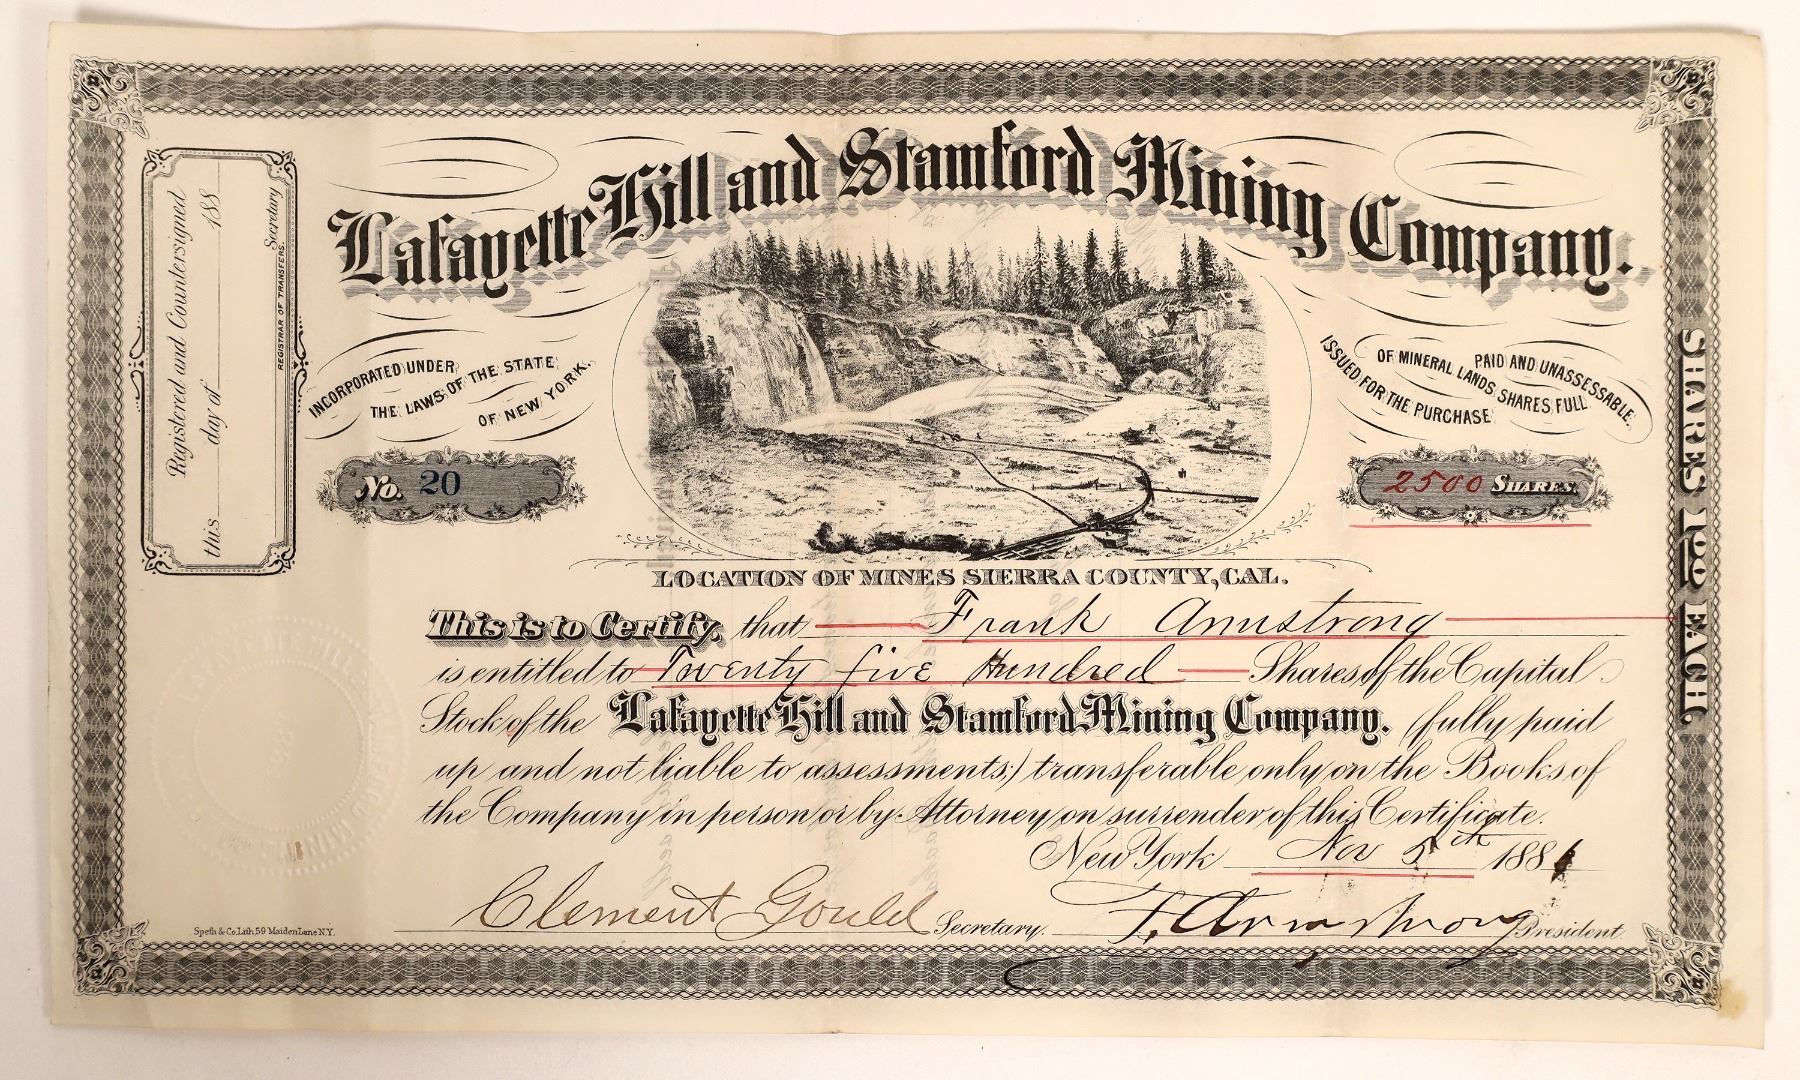 Lafayette Hill and Stamford Mining Company.
Registered and Countersigned
this day of 188
Secretary
REGISTRAR OF TRANSFERS.
INCORPORATED UNDER
THE LAWS OF THE STATE
OF NEW YORK.
ISSUED FOR THE PURCHASE
OF MINERAL LANDS, SHARES FULL
PAID AND UNASSESSABLE.
No. 20
2500 SHARES.
SHARES $100 EACH
LOCATION OF MINES SIERRA COUNTY, CAL.
This is to Certify, that Frank Armstrong
is entitled to Twenty five Hundred Shares of the Capital
Stock of the Lafayette Hill and Stamford Mining Company. (fully paid
up and not liable to assessments;) transferable only on the Books of
the Company in person or by Attorney on surrender of this Certificate.
New York Nov 5th 1881
Clement Gould Secretary. F. Armstrong President
Speth & Co. Lith. 59 Maiden Lane N.Y.